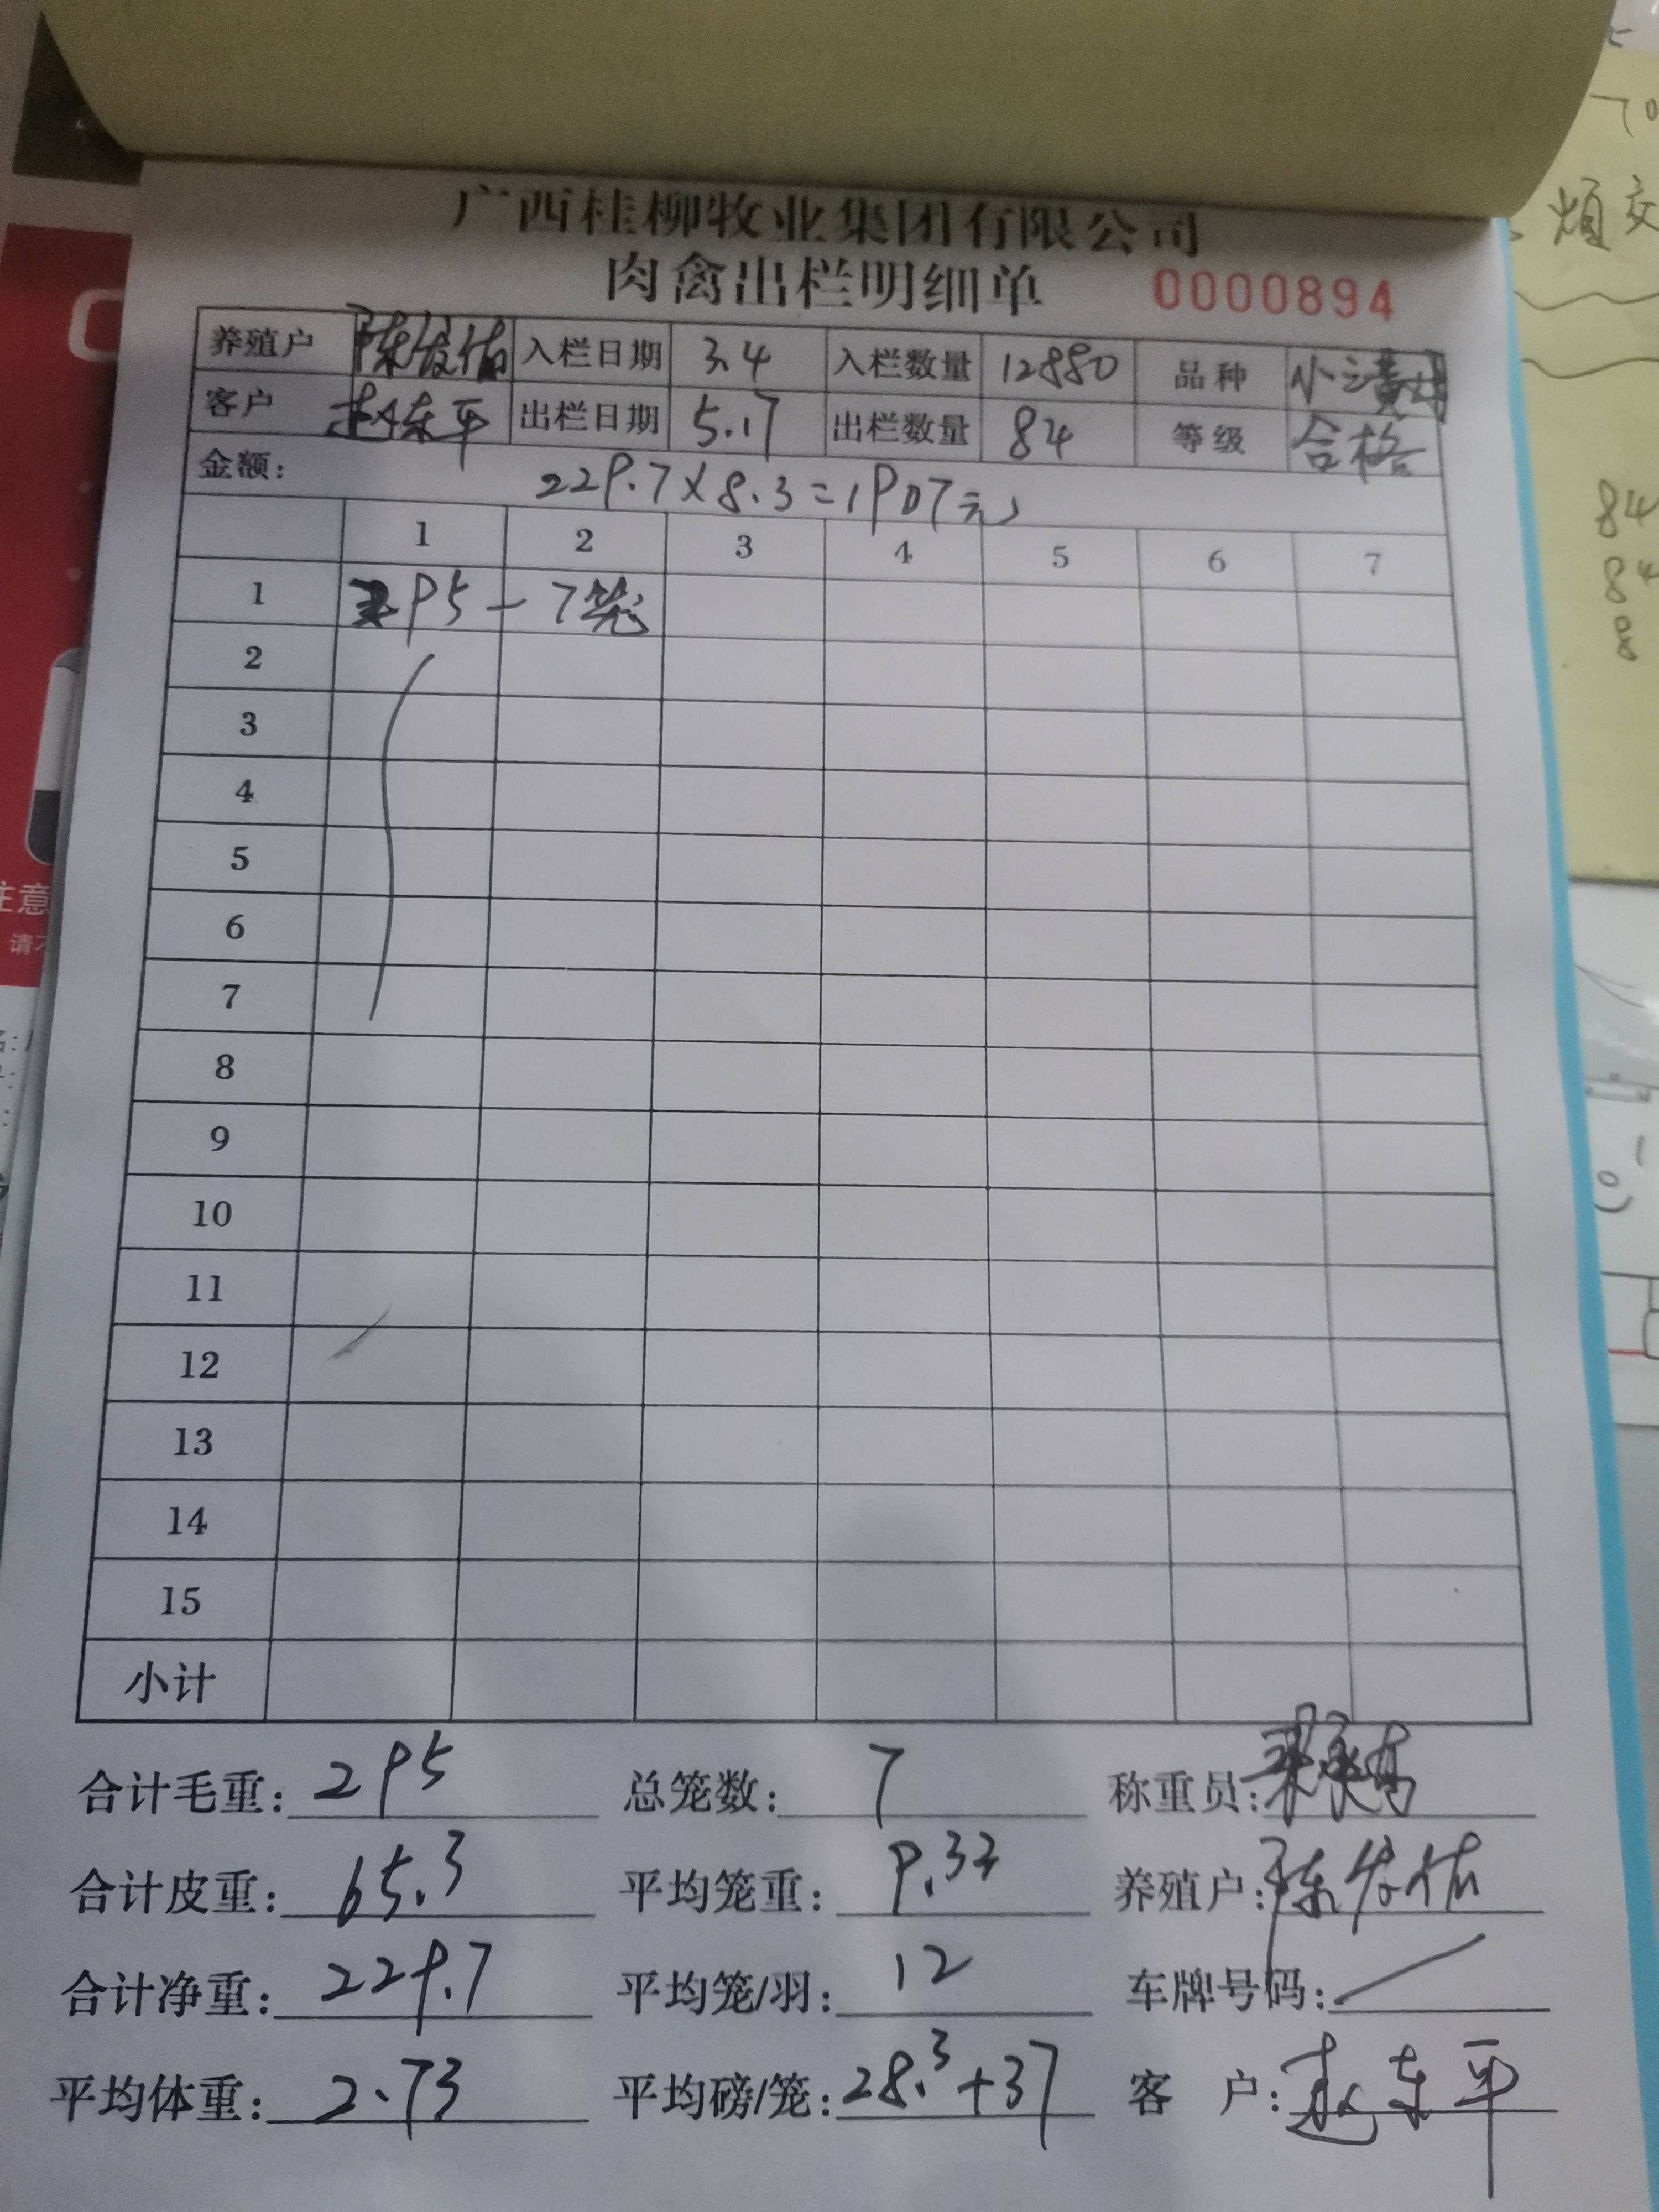 广西桂柳牧业集团有限公司
肉禽出栏明细单 0000894
养殖户 陈发佑 入栏日期 3.4 入栏数量 12880 品种 小
客户 赵东平 出栏日期 5.17 出栏数量 84 等级 合格
金额: 229.7×8.3=1907元
1 2 3 4 5 6 7
1 295-7笼
2
3
4
5
6
7
8
9
10
11
12
13
14
15
小计
合计毛重: 295 总笼数: 7 称重员:
合计皮重: 65.3 平均笼重: 9.33 养殖户: 陈发佑
合计净重: 229.7 平均笼/羽: 12 车牌号码:
平均体重: 2.73 平均磅/笼: 28.3+37 客 户: 赵东平
烦交
84
84
8
注意